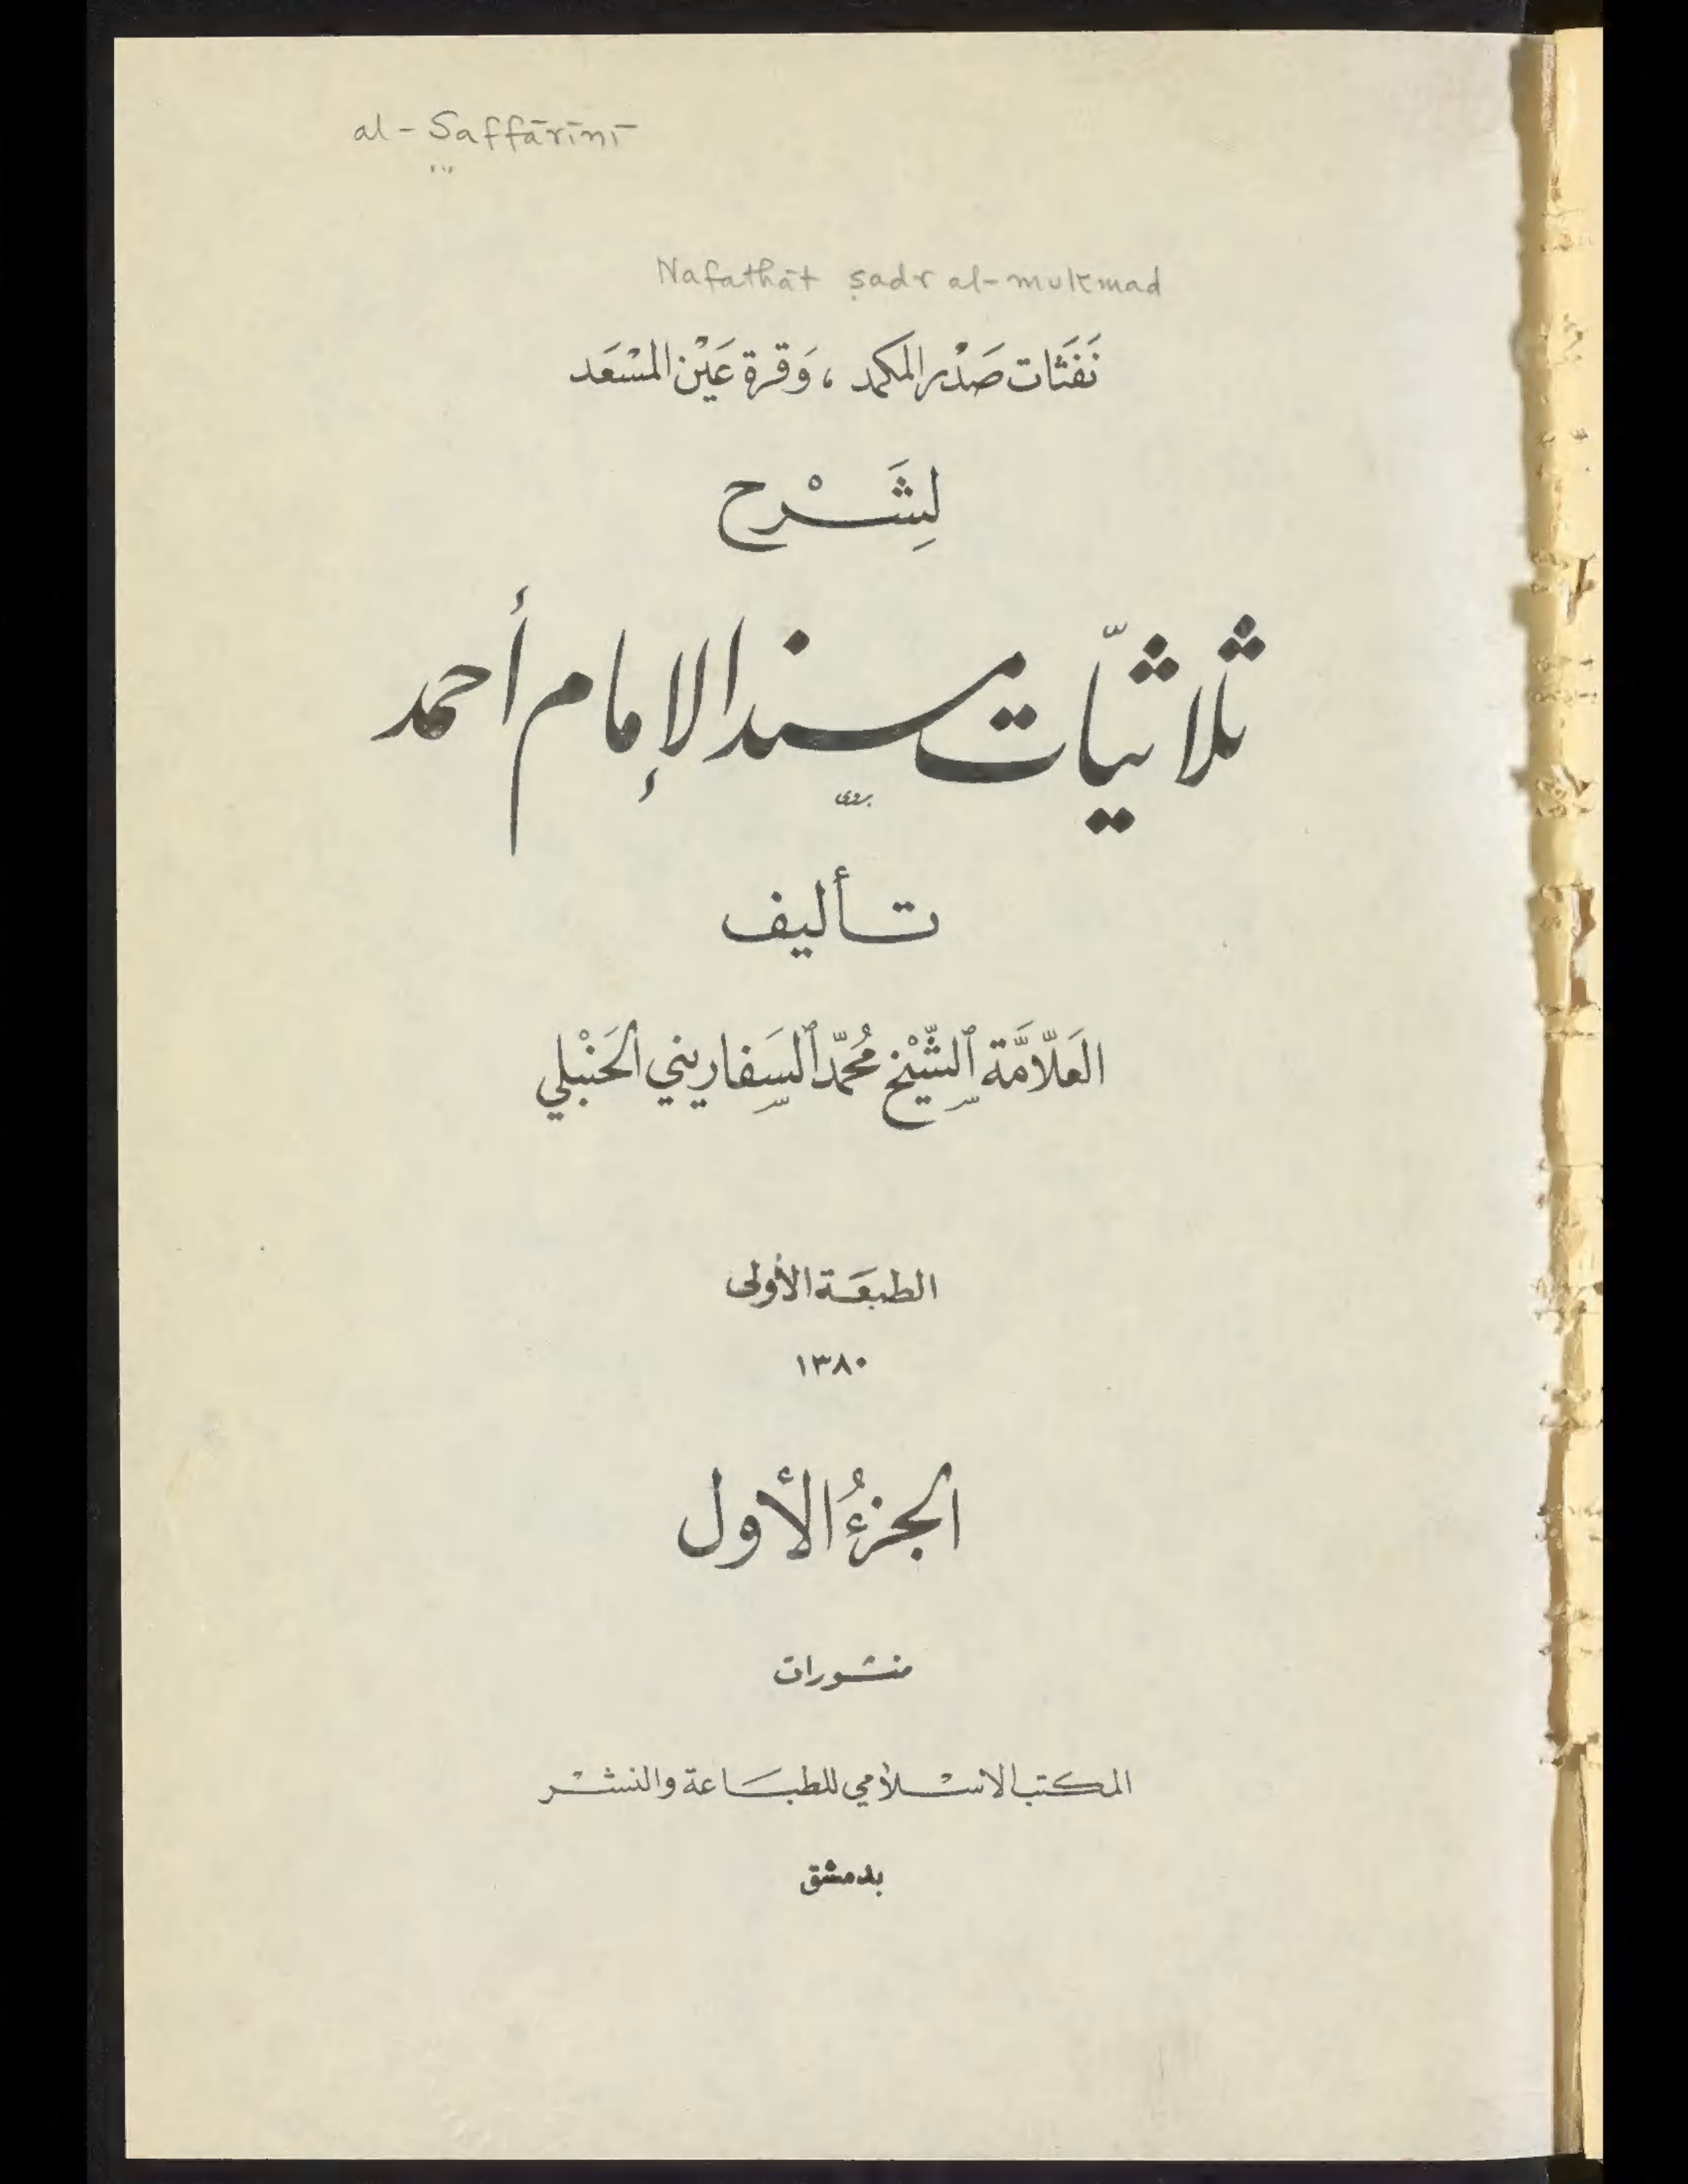 al-Saffārīnī
Nafathāt ṣadr al-mukmad
نَفَثَات صَدْر المكمد ، وَقرة عَيْن المسْعَد
لِشَرْح
ثلاثيّات مسند الإمام أحمد
تأليف
العَلّامَّة ٱلشّيْخ مُحمّد ٱلسَفاريني الحَنْبلي
الطبعَة الأولى
١٣٨٠
الجزءُ الأول
منشورات
المكتب الاسْلامي للطبَاعة والنشْر
بدمشق